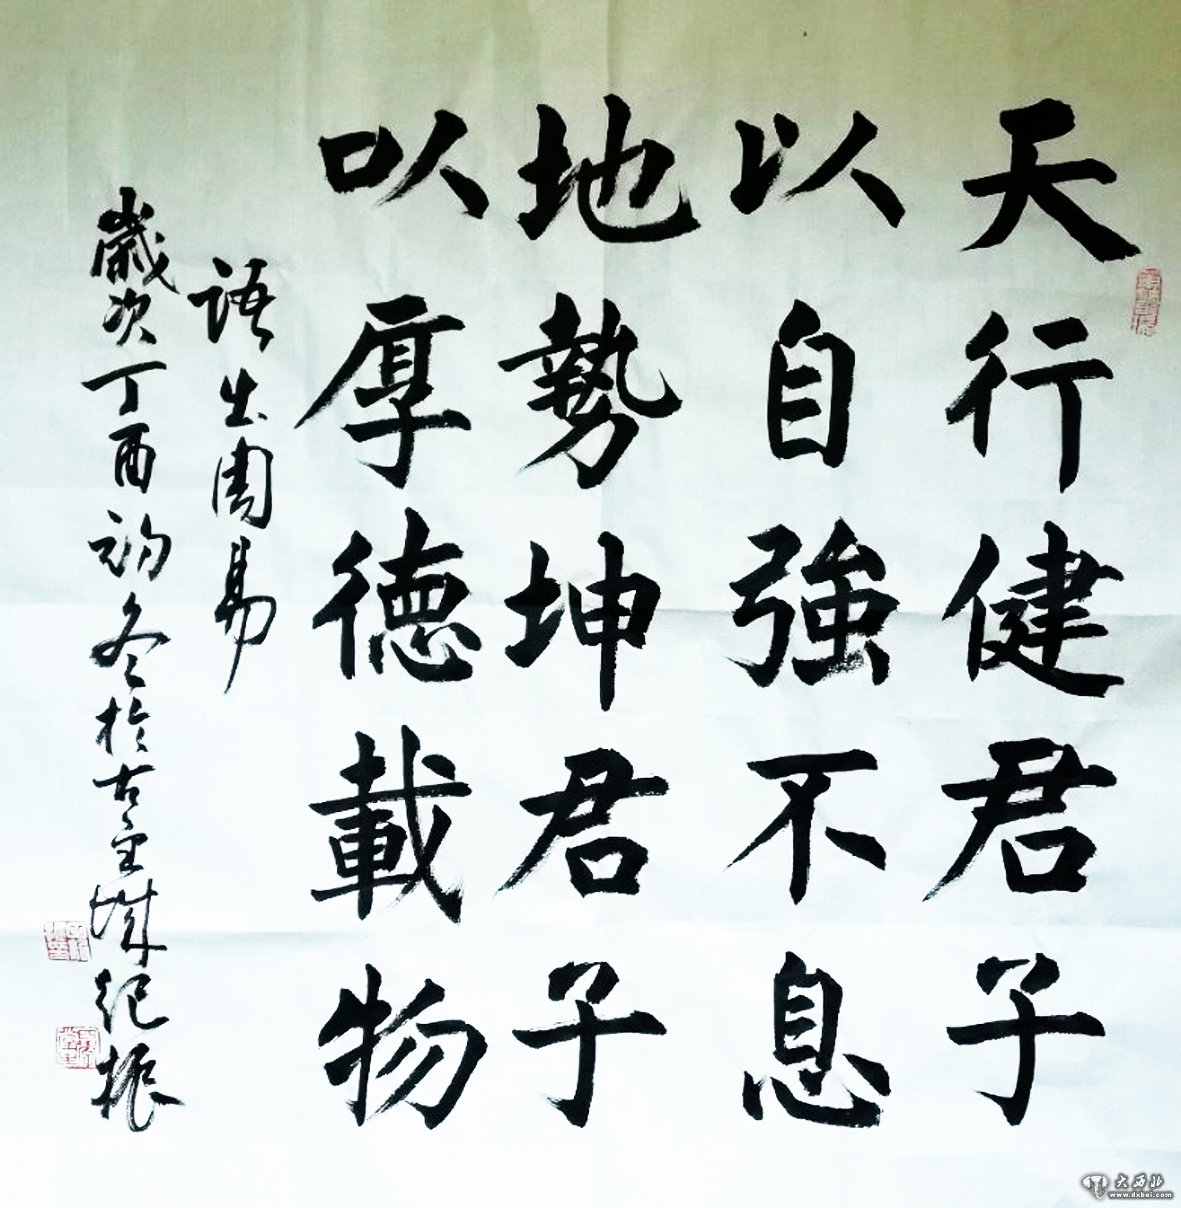 天行健君子
以自強不息
地勢坤君子
以厚德載物
語出周易
歲次丁酉初冬於古金城紀振
大西北
www.dxbei.com